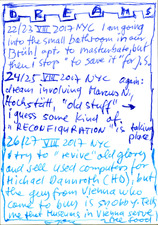 DREAMS
22/23 VIII 2017 NYC I am going
into the small bathroom in our
Brühl apt. to masturbate, but
then I stop "to save it" for J.S.
24/25 VIII 2017 NYC again:
dream involving Marcus N,
Höchstätt, "old stuff" →
I guess some kind of
"RECONFIGURATION" is taking
place!
26/27 VIII 2017 NYC
I try to "revive" old glory
and sell used computers for
Michael Dannroth (HO), but
the guy from Vienna who
came to buy is snobby. Tells
me that Museums in Vienna serve
nice food!